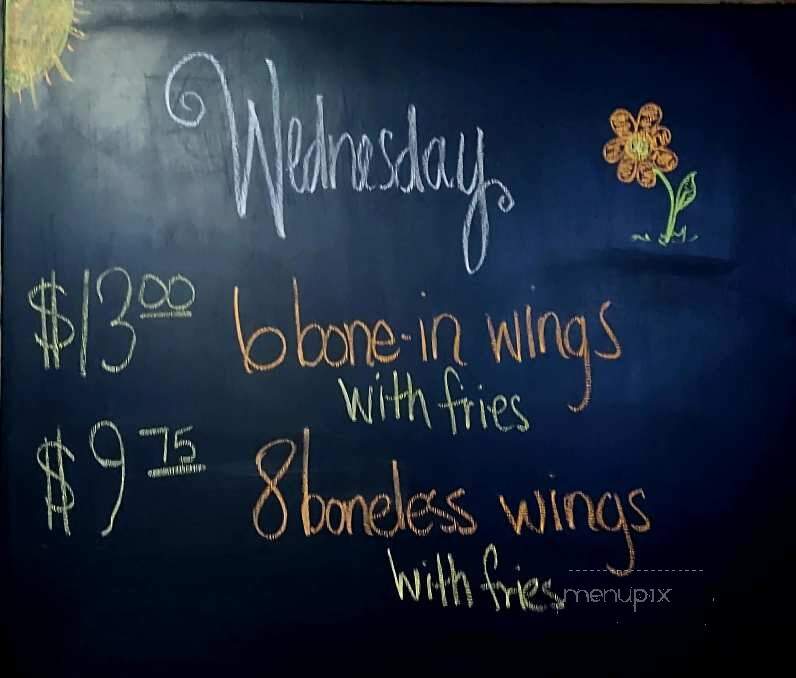 Wednesday
$13.00 6 bone-in wings
with fries
$9.75 8 boneless wings
with fries
menupix